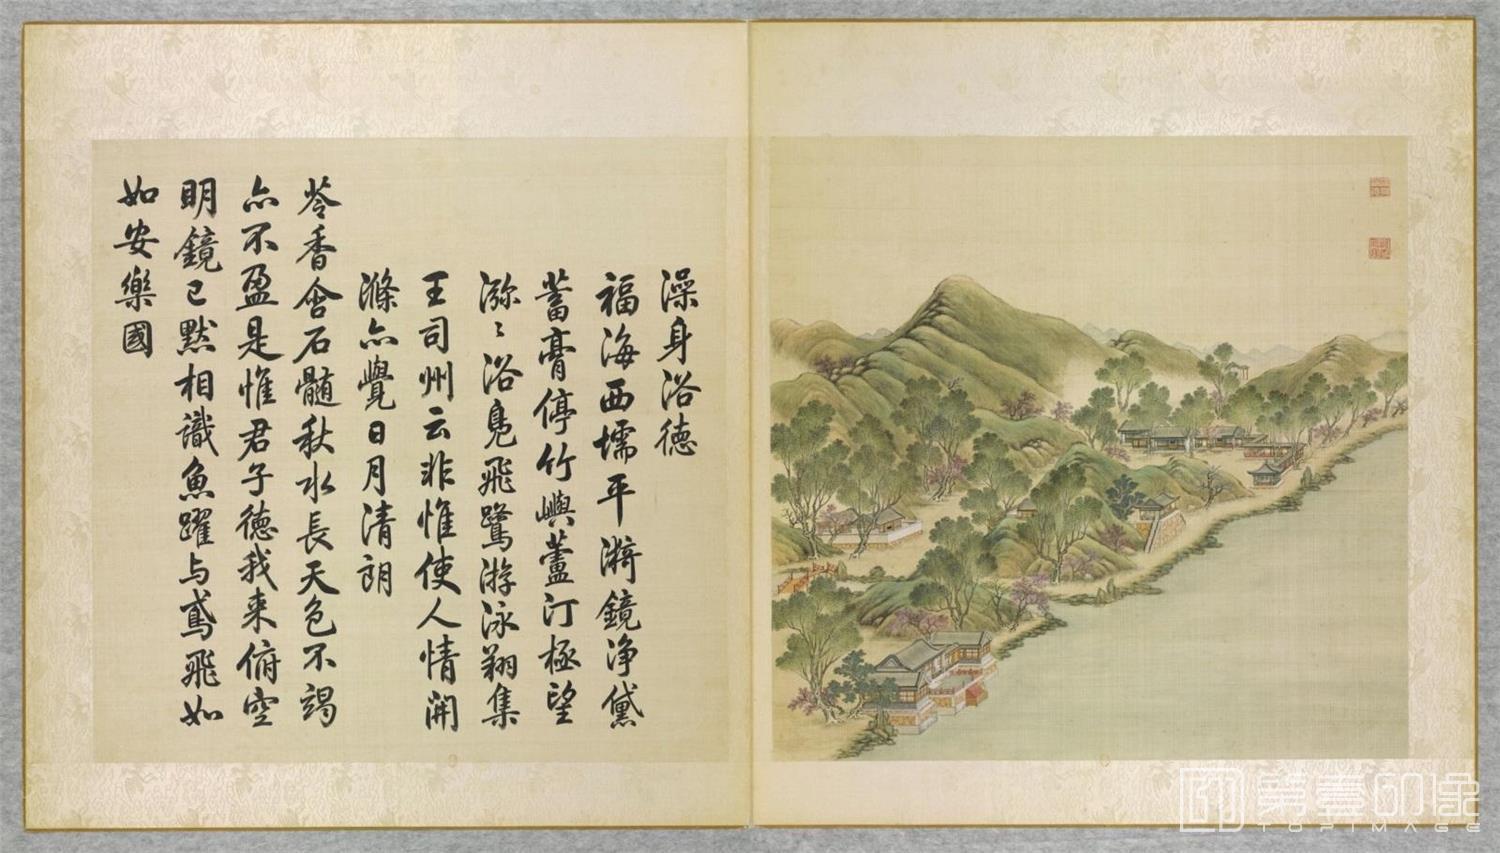 澡身浴德
福海西壖平漪鏡净黛
蓄膏停竹嶼蘆汀極望
瀰〻浴鳧飛鷺游泳翔集
王司州云非惟使人情開
滌亦覺日月清朗
苓香含石髓秋水長天色不竭
亦不盈是惟君子德我来俯空
明鏡已默相識魚躍与鳶飛如
如安樂國
第壹印象
TOPIMAGE